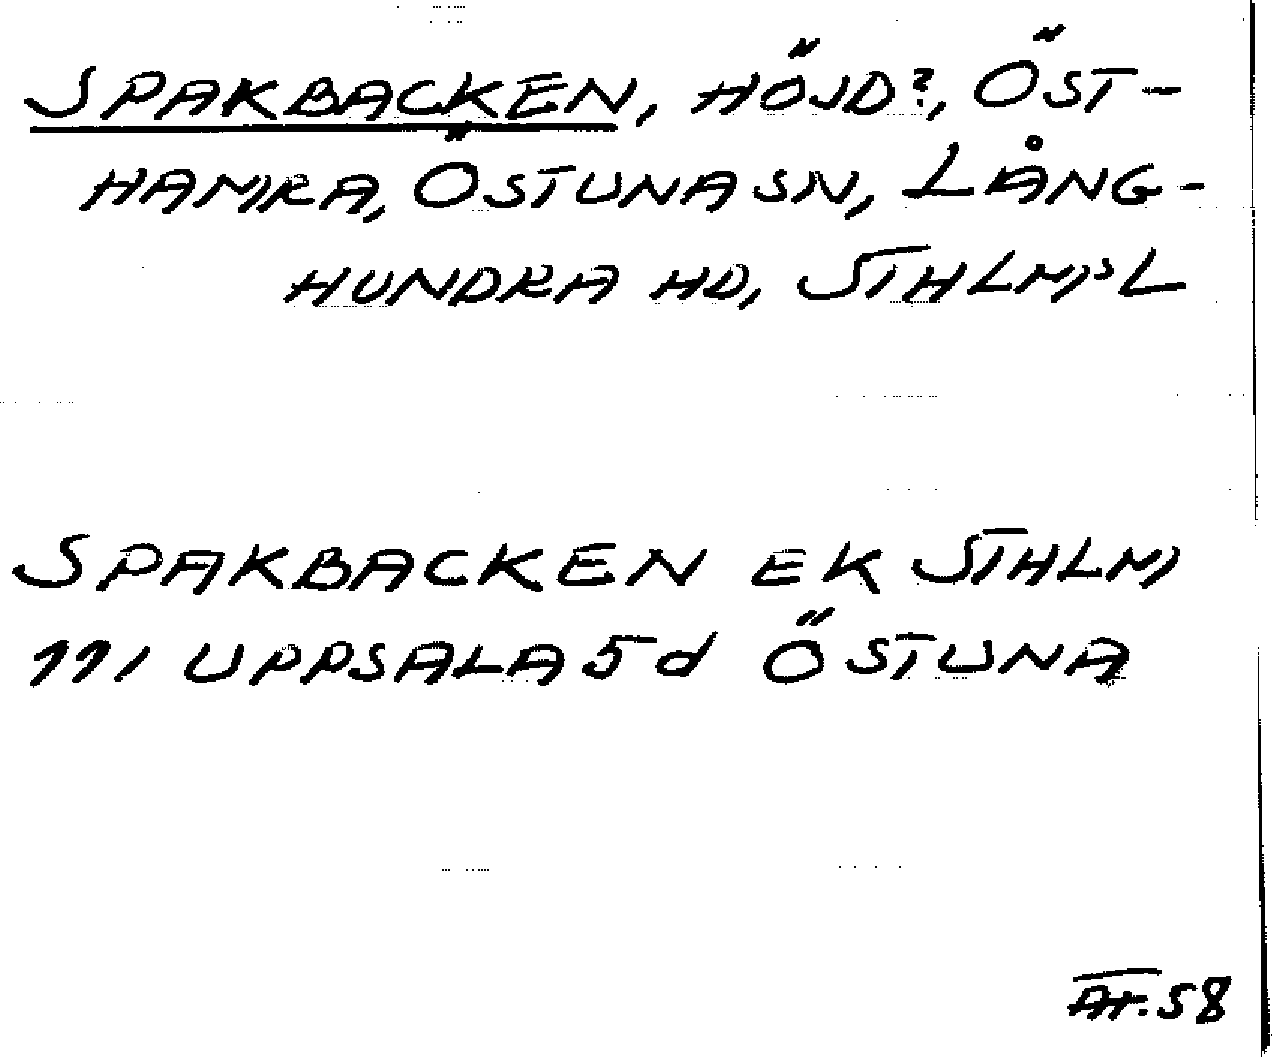 SPAKBACKEN, HÖJD?, ÖST-
HAMRA, ÖSTUNA SN, LÅNG-
HUNDRA HD, STHLMS L
SPAKBACKEN EK STHLM
111 UPPSALA 5d ÖSTUNA
58